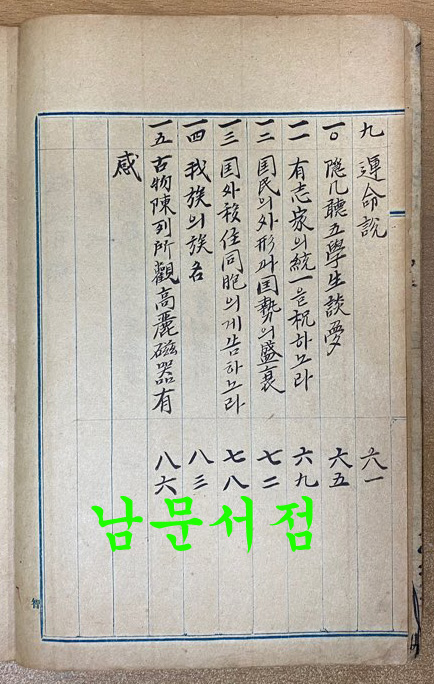 九 運命說 六一
一〇 隐几聽五學生談夢 六五
一一 有志家의統一을祝하노라 六九
一二 国民의外形과国勢의盛衰 七二
一三 国外移住同胞의게告하노라 七八
一四 我族의族名 八三
一五 古物陳列所觀高麗磁器有 八六
感
남문서점
智